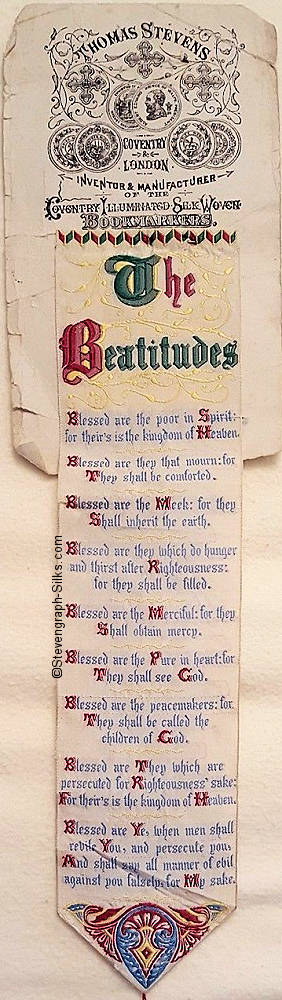 THOMAS STEVENS
COVENTRY
&
LONDON.
INVENTOR & MANUFACTURER
OF THE
COVENTRY ILLUMINATED SILK WOVEN
BOOKMARKERS.
The
Beatitudes
Blessed are the poor in Spirit:
for their's is the kingdom of Heaven.
Blessed are they that mourn: for
They shall be comforted.
Blessed are the Meek: for they
Shall inherit the earth.
Blessed are they which do hunger
and thirst after Righteousness:
for they shall be filled.
Blessed are the Merciful: for they
Shall obtain mercy.
Blessed are the Pure in heart: for
They shall see God.
Blessed are the peacemakers: for
They shall be called the
children of God.
Blessed are They which are
persecuted for Righteousness' sake:
For their's is the kingdom of Heaven.
Blessed are Ye, when men shall
revile You, and persecute you,
And shall say all manner of evil
against you falsely, for My sake.
©Stevengraph-Silks.com